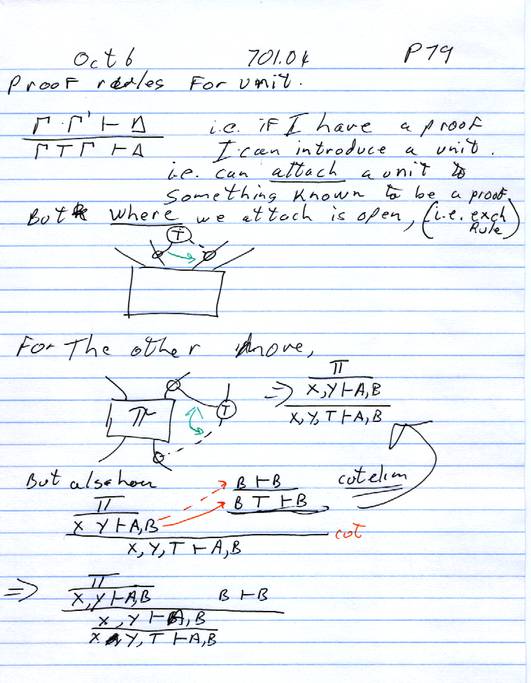 Oct 6 701.04 P79
Proof rules For unit.
Γ, Γ' ⊢ Δ i.e. if I have a proof
Γ T Γ' ⊢ Δ I can introduce a unit.
i.e. can attach a unit to
something known to be a proof.
But where we attach is open, (i.e. exch Rule)
T
For The other move,
π
π T ⇒ X, Y ⊢ A, B
X, Y, T ⊢ A, B
But also have
π B ⊢ B cut elim
X Y ⊢ A, B B T ⊢ B
cut
X, Y, T ⊢ A, B
π
⇒ X, Y ⊢ A, B B ⊢ B
X, Y ⊢ A, B
X, Y, T ⊢ A, B